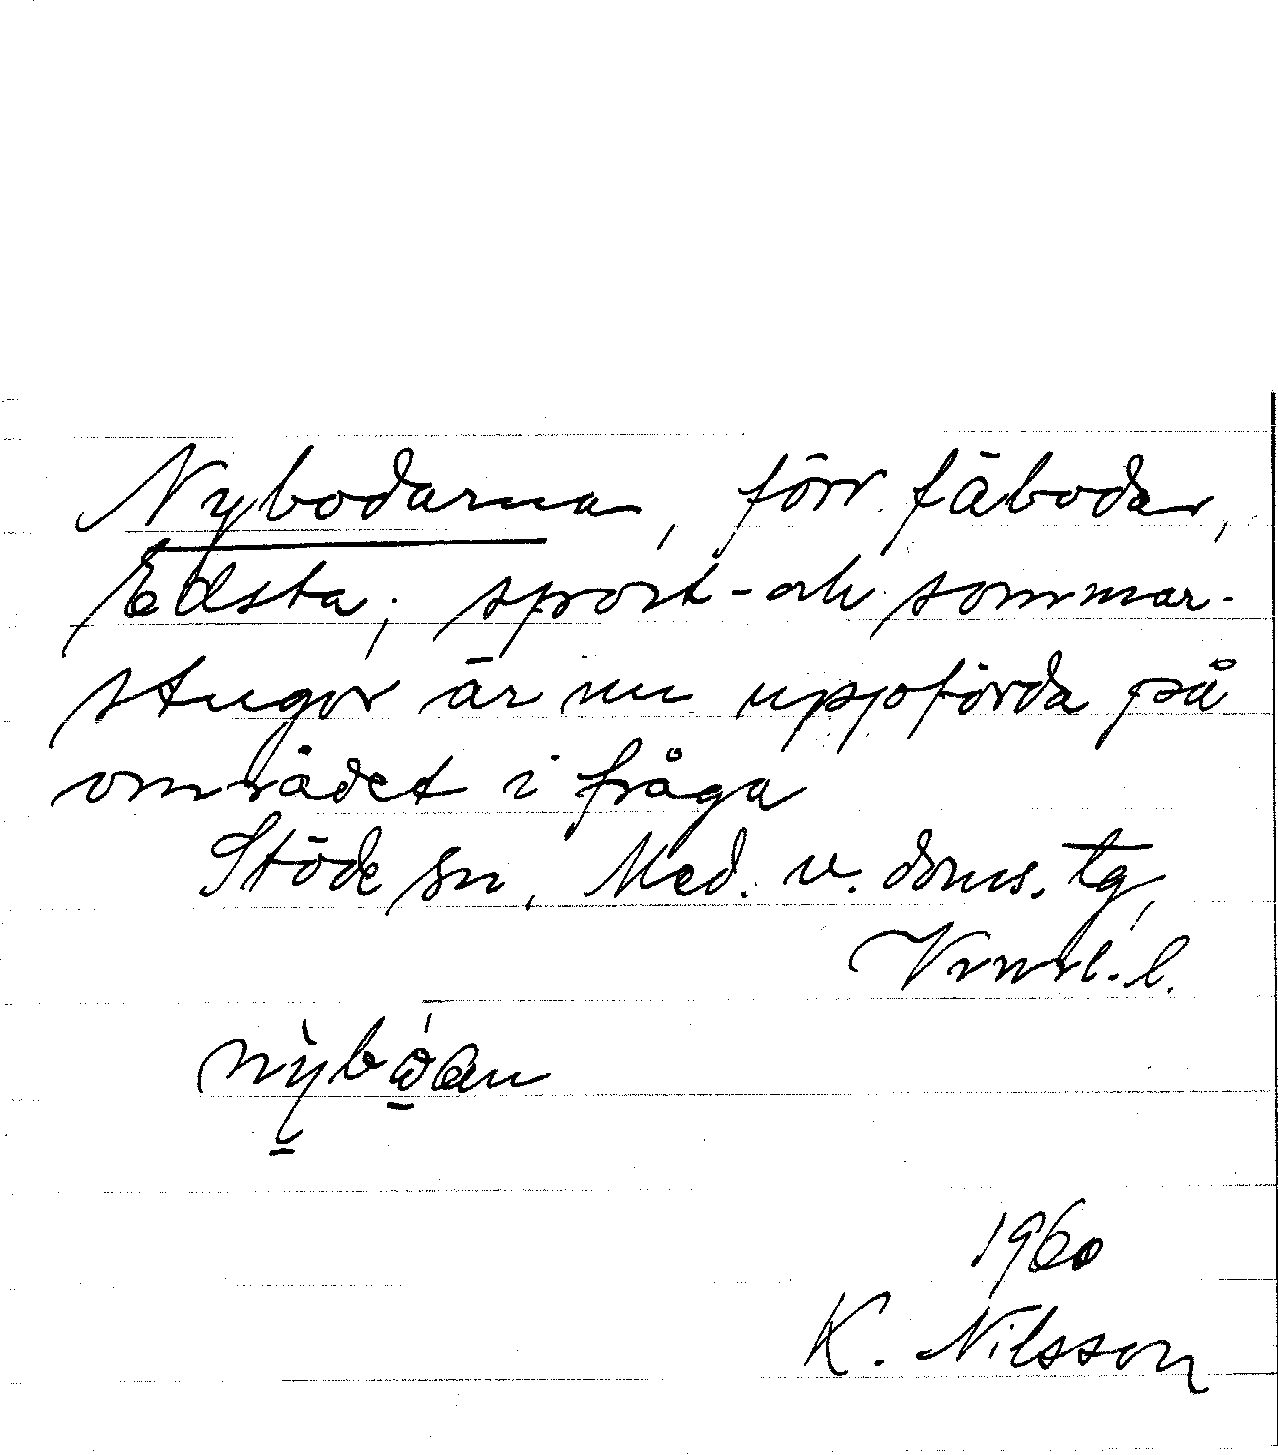 Nybodarna, förr fäbodar,
Edsta; sport- och sommar-
stugor är nu uppförda på
området i fråga
Stöde sn, Med. v. doms. tg,
Vrnrl. l.
1960
K. Nilsson